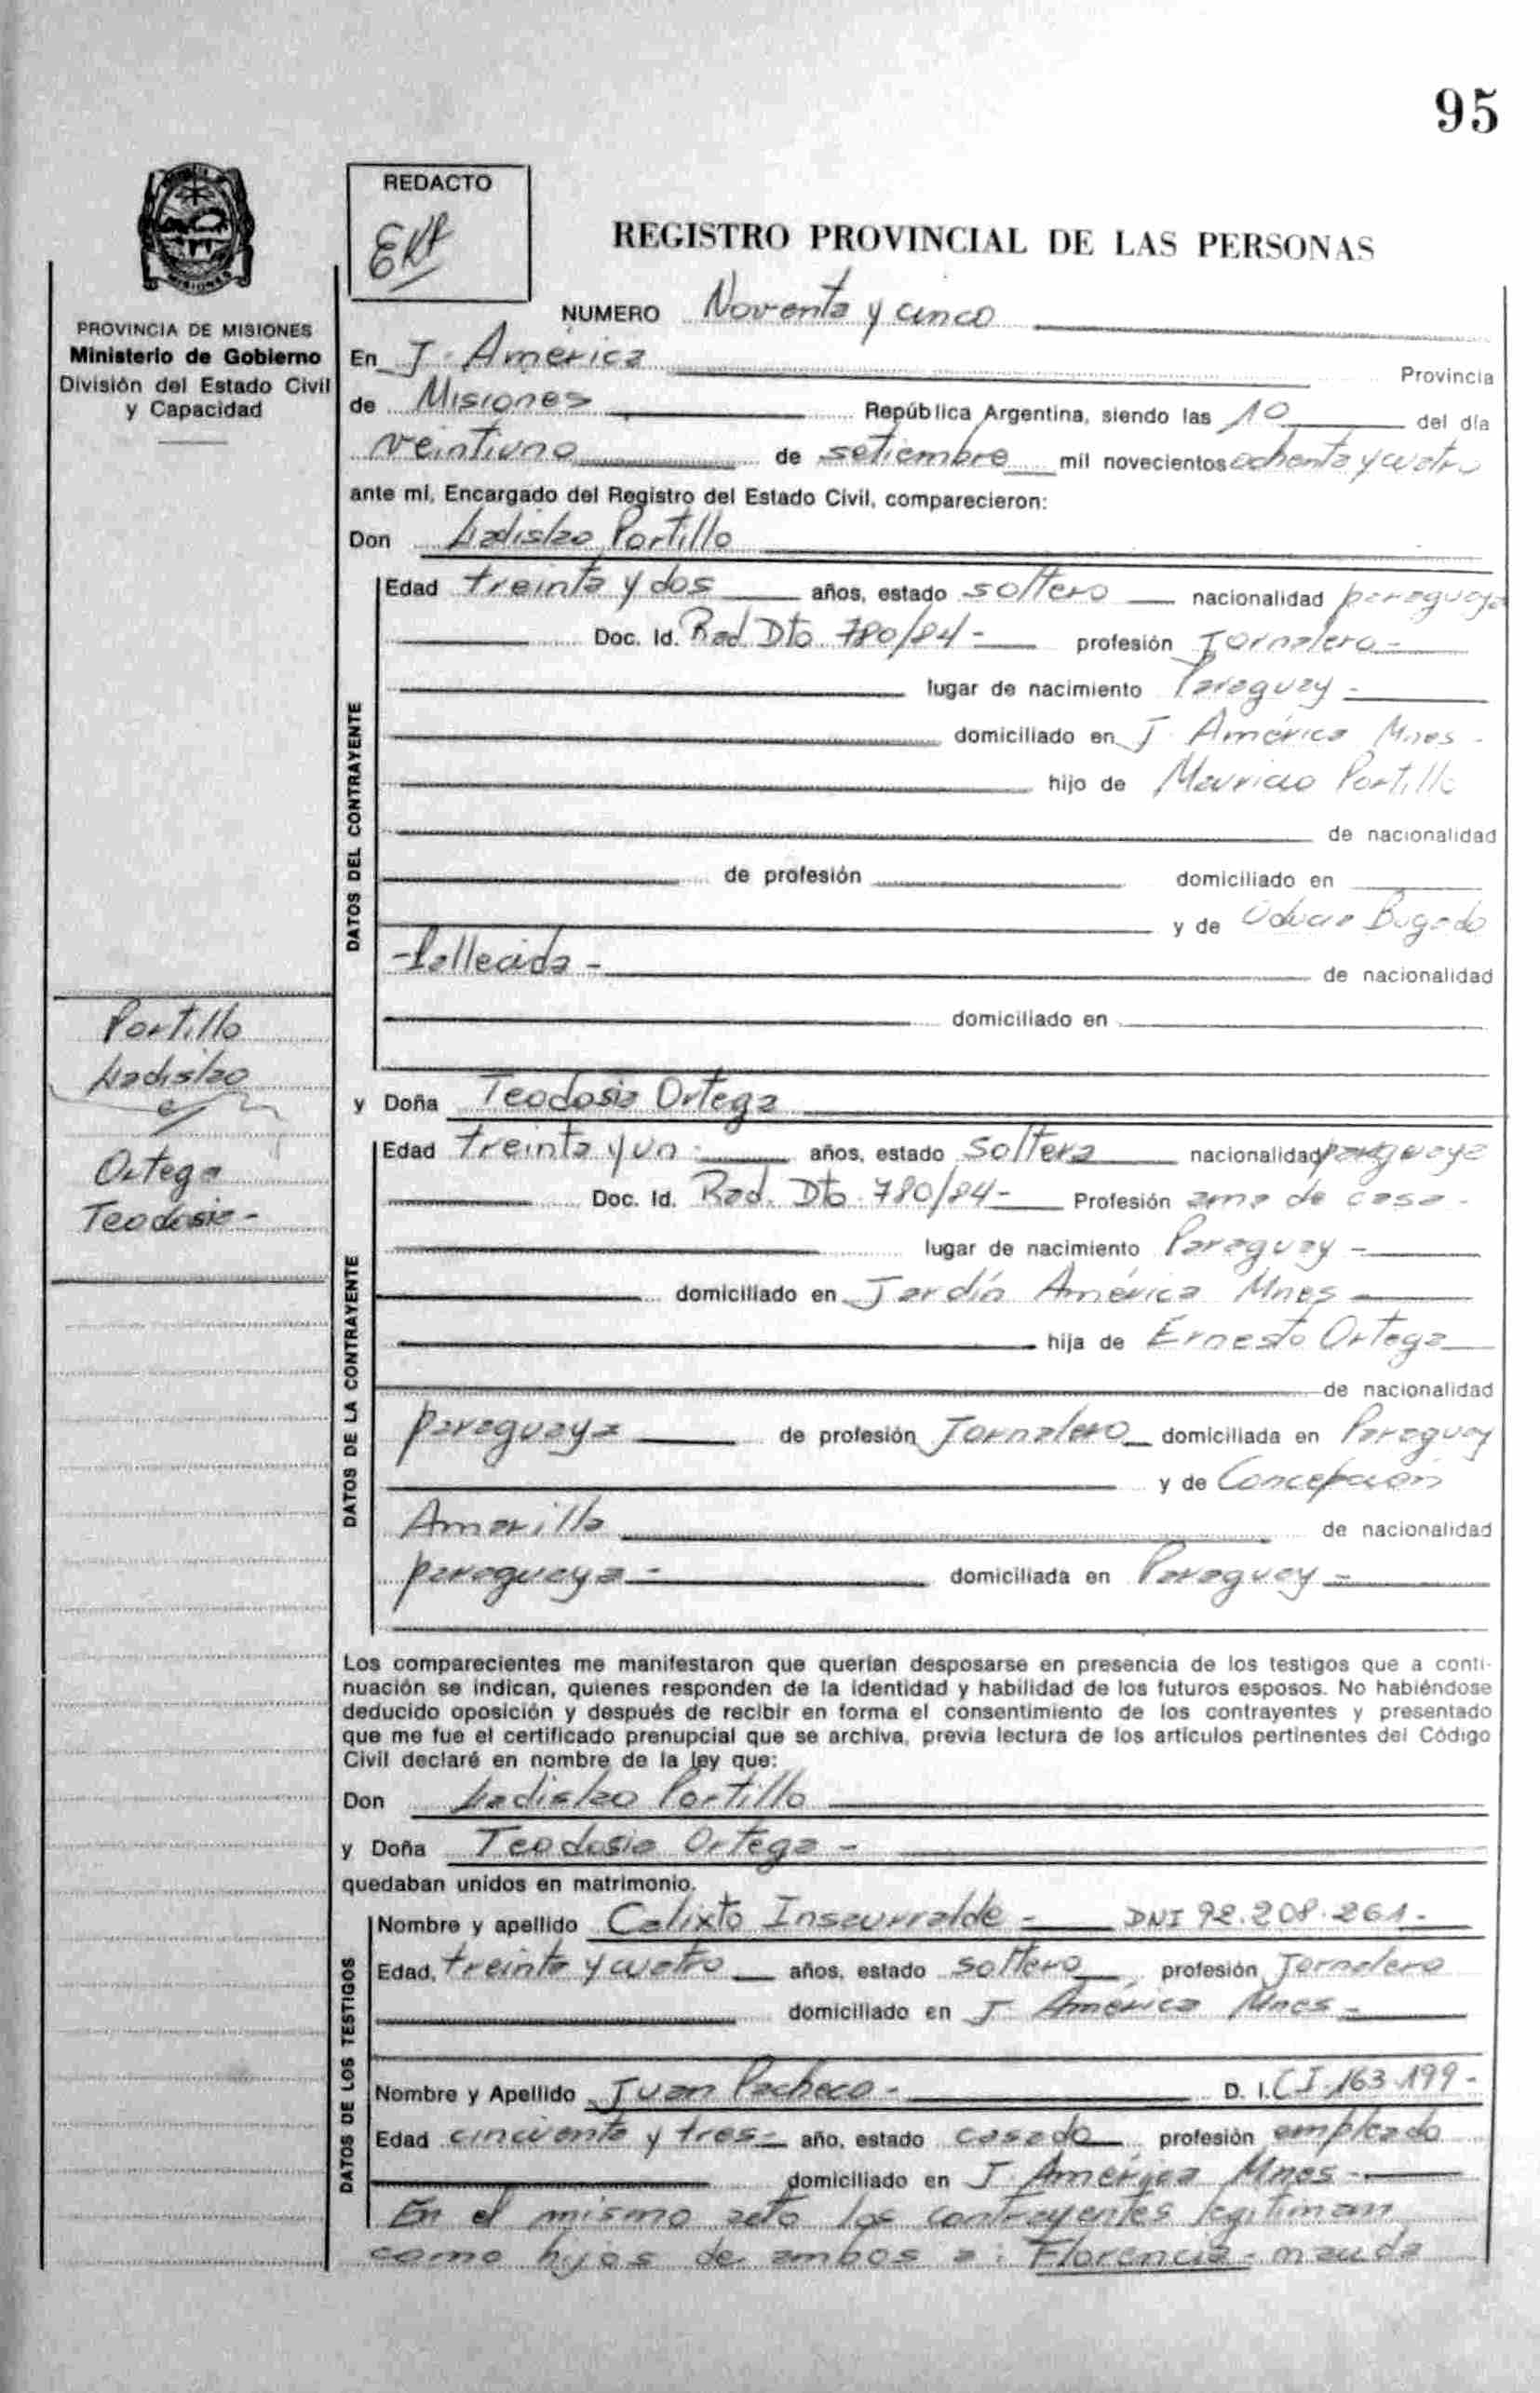 95
REDACTO
REGISTRO PROVINCIAL DE LAS PERSONAS
NUMERO Noventa y cinco
MISIONES
PROVINCIA DE MISIONES
Ministerio de Gobierno
División del Estado Civil
y Capacidad
En J. América Provincia
de Misiones República Argentina, siendo las 10 del día
veintiuno de setiembre mil novecientos ochenta y cuatro
ante mí, Encargado del Registro del Estado Civil, comparecieron:
Don Ladislao Portillo
DATOS DEL CONTRAYENTE
Edad treinta y dos años, estado soltero nacionalidad paraguaya
Doc. Id. Rad. Dto 780/84 - profesión Jornalero -
lugar de nacimiento Paraguay -
domiciliado en J. América Mnes -
hijo de Mauricio Portillo
de nacionalidad
de profesión domiciliado en
y de Bogado
- fallecida - de nacionalidad
domiciliado en
Portillo
Ladislao
Ortega
Teodosia -
y Doña Teodosia Ortega
DATOS DE LA CONTRAYENTE
Edad treinta y un - años, estado soltera nacionalidad paraguaya
Doc. Id. Rad. Dto. 780/84 - Profesión ama de casa -
lugar de nacimiento Paraguay -
domiciliado en Jardín América Mnes
hija de Ernesto Ortega
de nacionalidad
paraguaya de profesión Jornalero domiciliada en Paraguay
y de Concepción
Amarilla de nacionalidad
paraguaya - domiciliada en Paraguay -
Los comparecientes me manifestaron que querían desposarse en presencia de los testigos que a conti-
nuación se indican, quienes responden de la identidad y habilidad de los futuros esposos. No habiéndose
deducido oposición y después de recibir en forma el consentimiento de los contrayentes y presentado
que me fue el certificado prenupcial que se archiva, previa lectura de los artículos pertinentes del Código
Civil declaré en nombre de la ley que:
Don Ladislao Portillo
y Doña Teodosia Ortega -
quedaban unidos en matrimonio.
DATOS DE LOS TESTIGOS
Nombre y apellido Calixto Insaurralde - DNI 92.208.261 -
Edad, treinta y cuatro años, estado soltero profesión Jornalero
domiciliado en J. América Mnes -
Nombre y Apellido Juan Pacheco - D. I. C I. 163.199 -
Edad cincuenta y tres - año, estado casado profesión empleado
domiciliado en J. América Mnes -
En el mismo acto los contrayentes legitiman
como hijos de ambos a: Florencia